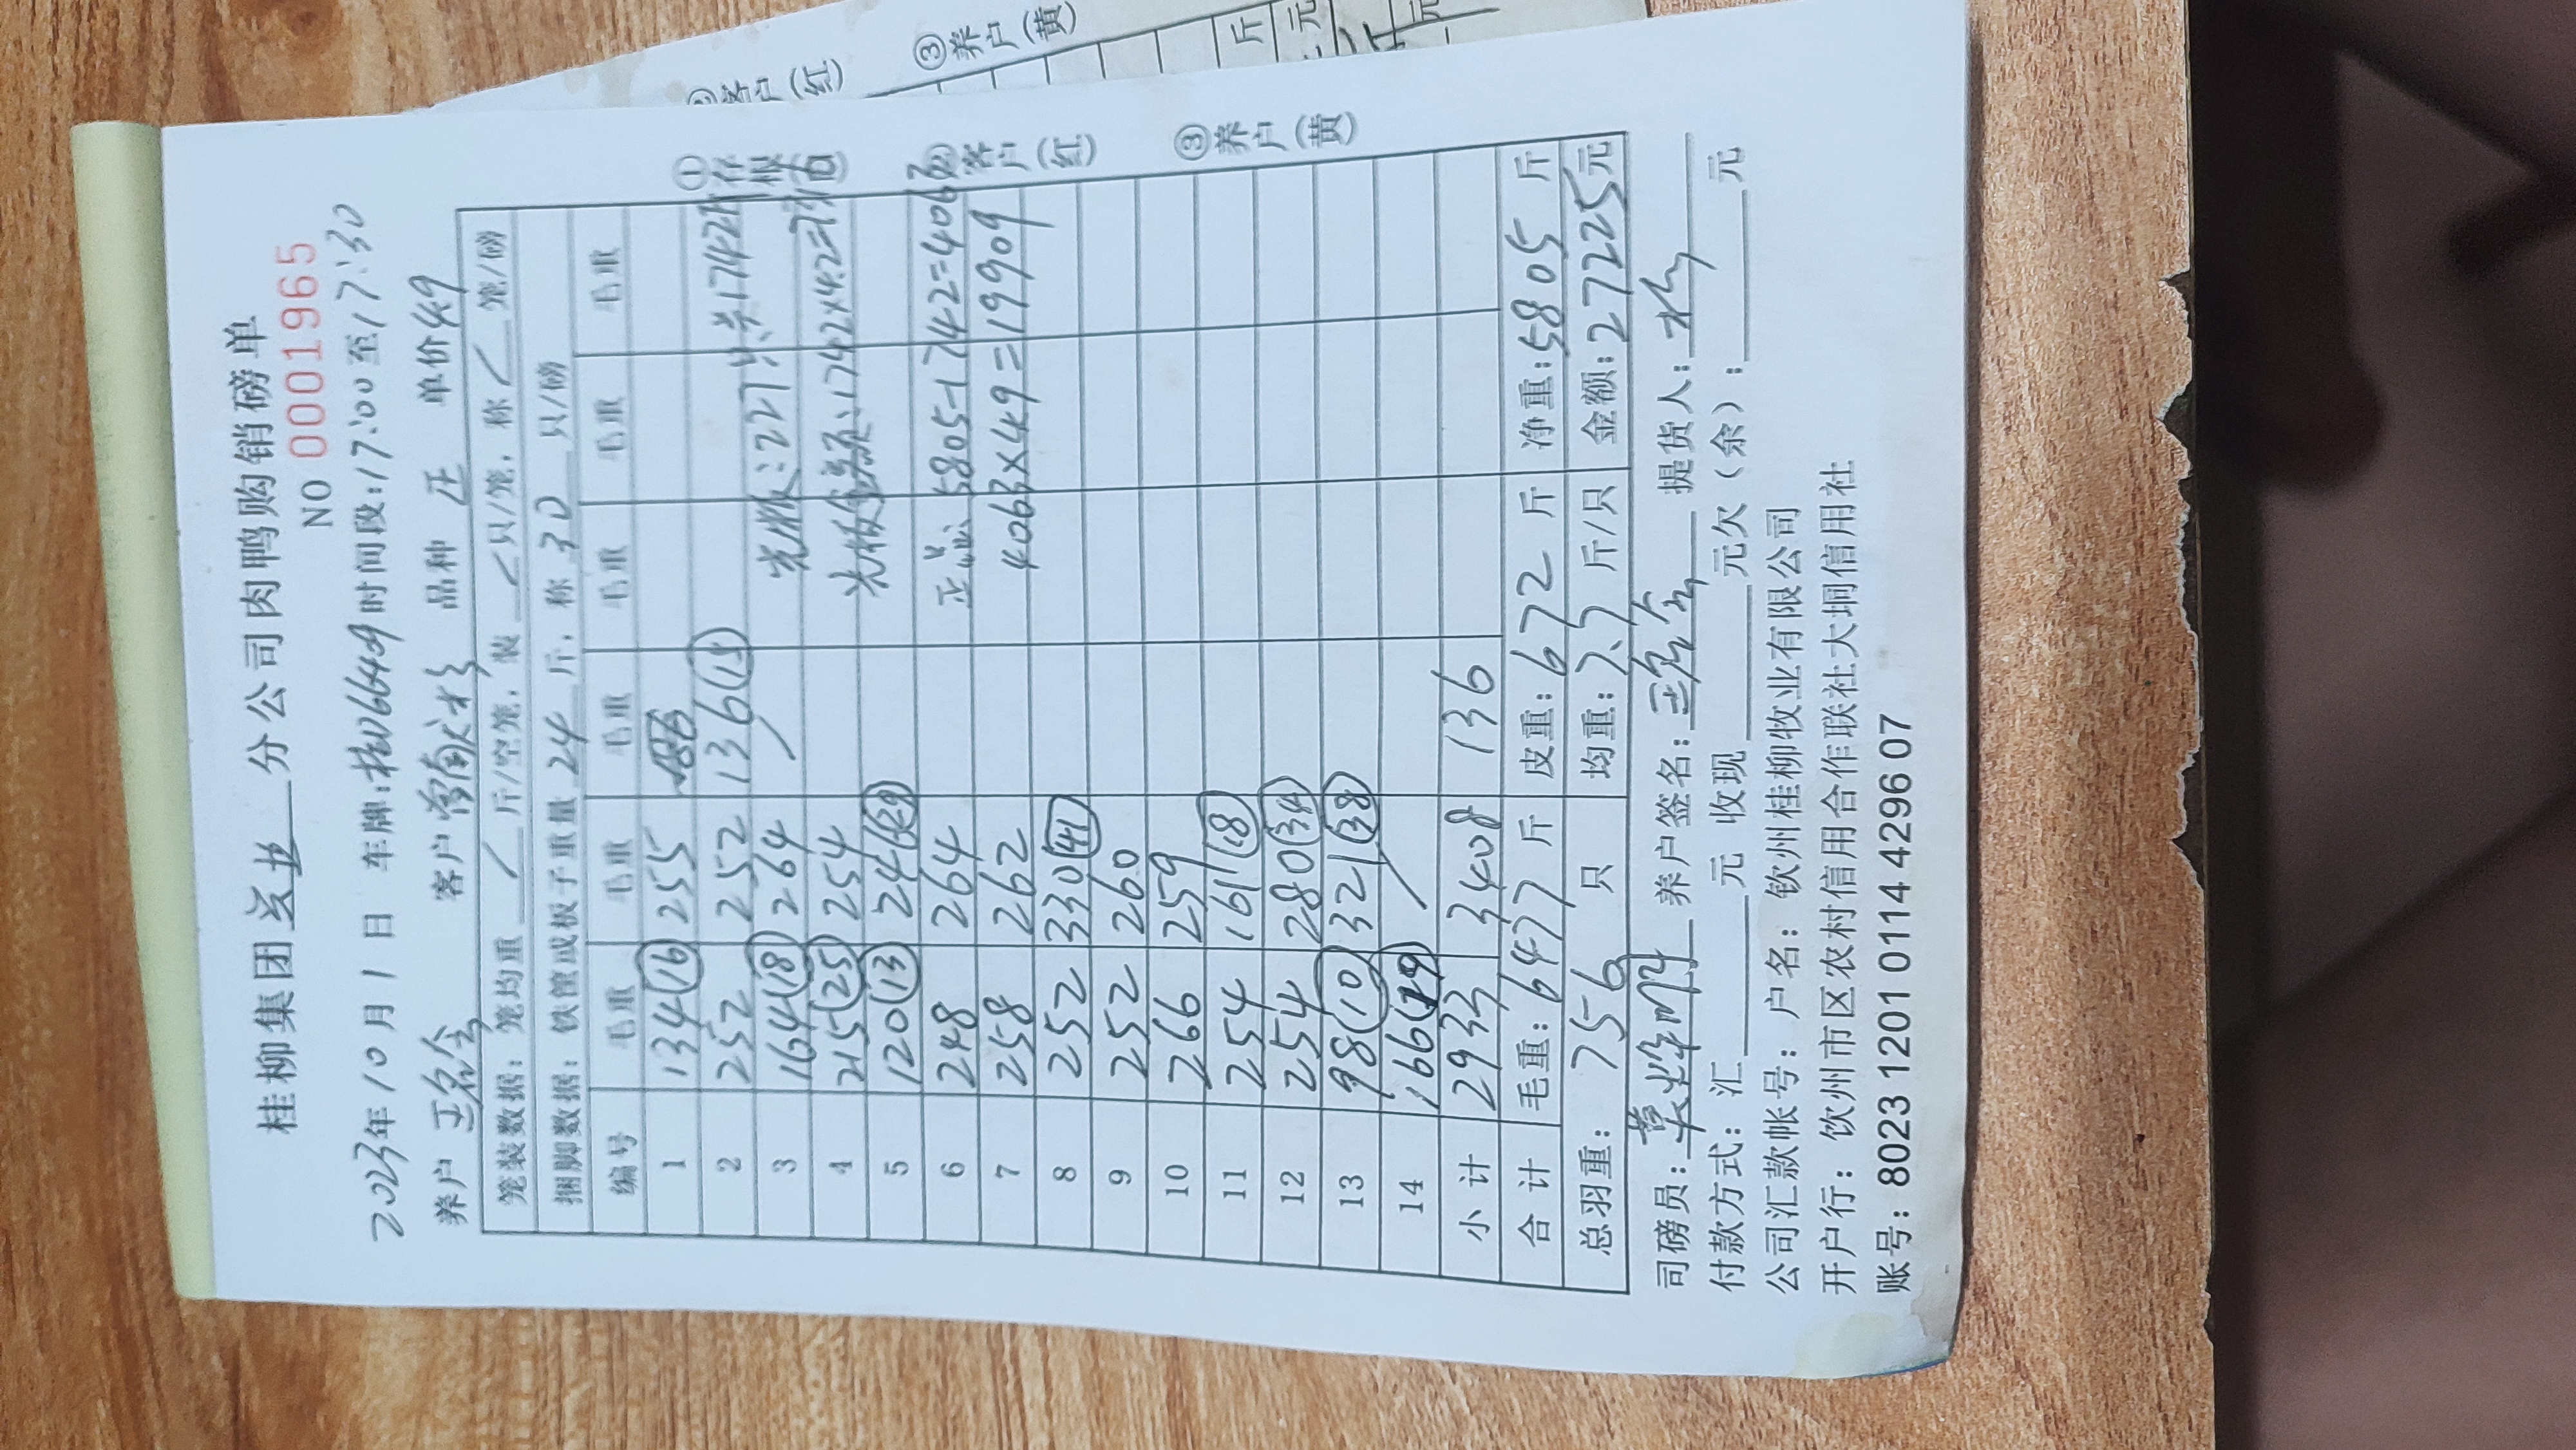 桂柳集团 分公司肉鸭购销磅单
NO 0001965
2023年10月1日 车牌:桂D66409 时间段:17:00至17:30
养户 客户 品种 正 单价 4.9
笼装数据: 笼均重 / 斤/空笼, 装 / 只/笼, 称 / 笼/磅
捆脚数据: 铁筐或板子重量 24 斤, 称 30 只/磅
编号 毛重 毛重 毛重 毛重 毛重 毛重
1 134(16) 255
2 252 252 136(15) 共1742斤
3 164(18) 264 光板:227只
4 215(25) 254 光板金额:1742×4.2=
5 120(13) 244(29)
6 248 264 正品:5805-1742=4063
7 258 262 4063×4.9=19909
8 252 330(41)
9 252 260
10 266 259
11 254 161(18)
12 254 280(34)
13 98(10) 321(38)
14 166(19)
小计 2933 3408 136
合计 毛重:6477斤 皮重:672斤 净重:5805斤
总羽重: 756 只 均重:7.7斤/只 金额:27225元
司磅员: 养户签名: 提货人:
付款方式:汇 元 收现 元欠(余): 元
公司汇款帐号:户名:钦州桂柳牧业有限公司
开户行:钦州市区农村信用合作联社大垌信用社
账号:8023 1201 0114 4296 07
①存根(白) ②客户(红) ③养户(黄)
客户(红) ③养户(黄)
斤
元